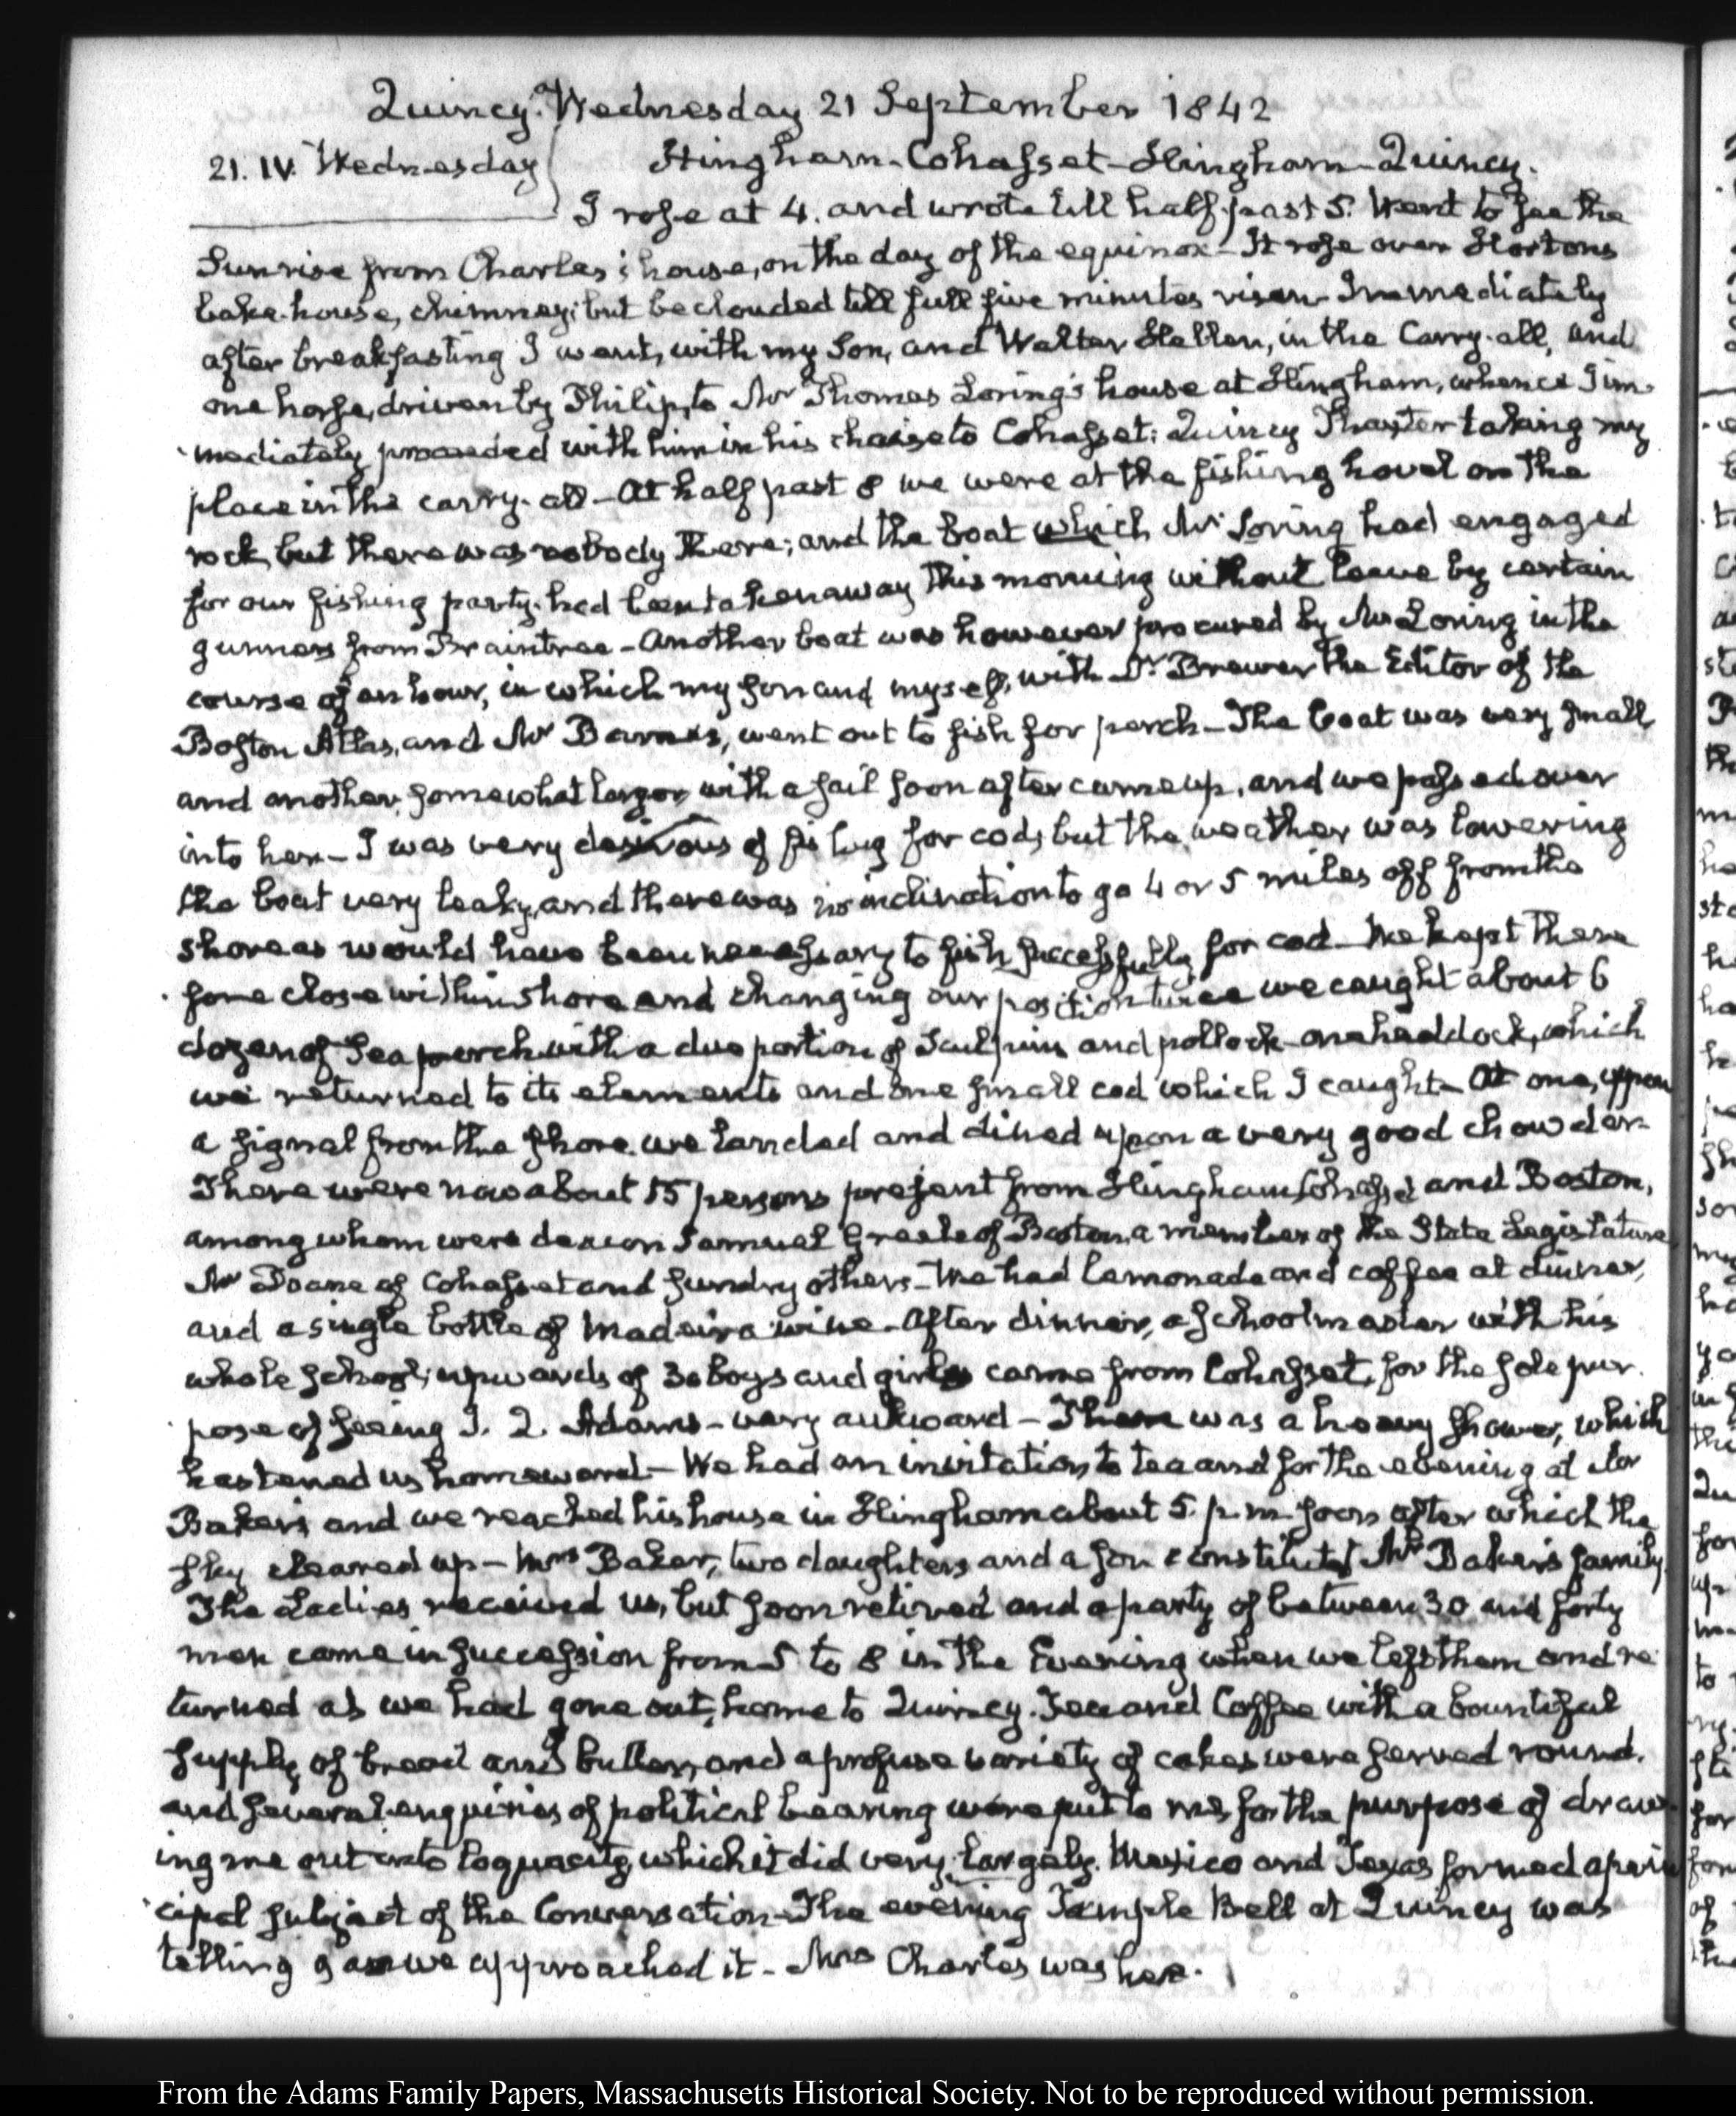 Quincy. Wednesday 21 September 1842
21. IV. Wednesday
Hingham - Cohasset - Hingham - Quincy.
I rose at 4. and wrote till half past 5. Went to see the
Sunrise from Charles's house, on the day of the equinox - It rose over Hortons
bake-house, chimney; but beclouded till full five minutes risen - Immediately
after breakfasting I went, with my Son, and Walter Hellen, in the Carry-all, and
one horse, driven by Philip, to Mr Thomas Loring's house at Hingham, whence I im-
mediately proceeded with him in his chaise to Cohasset: Quincy Thaxter taking my
place in the carry-all - At half past 8 we were at the fishing hovel on the
rock, but there was nobody there; and the boat which Mr Loring had engaged
for our fishing party, had been taken away this morning without leave by certain
gunners from Braintree - Another boat was however procured by Mr Loring in the
course of an hour, in which my son and myself, with Dr Brewer the Editor of the
Boston Atlas, and Mr Barnes, went out to fish for perch - The boat was very small,
and another, somewhat larger, with a sail soon after came up, and we passed over
into her - I was very desirous of fishing for cod, but the weather was lowering
the boat very leaky, and there was no inclination to go 4 or 5 miles off from the
shore as would have been necessary to fish successfully for cod - We kept there
fore close within shore and changing our position twice we caught about 6
dozen of Sea perch with a due portion of Sculpins and pollock - one haddock, which
we returned to its elements and one small cod which I caught - At one, upon
a signal from the shore we landed and dined upon a very good chowder -
There were now about 15 persons present from Hingham Cohasset and Boston,
among whom were deacon Samuel Greele of Boston, a member of the State Legislature
Mr Doane of Cohasset and sundry others - We had lemonade and coffee at dinner,
and a single bottle of Madeira wine - After dinner, a schoolmaster with his
whole school; upwards of 30 boys and girls came from Cohasset, for the sole pur-
pose of seeing J. Q. Adams - very awkward - There was a heavy shower, which
hastened us homeward - We had an invitation to tea and for the evening at Mr
Baker's and we reached his house in Hingham about 5. p.m. soon after which the
sky cleared up - Mrs Baker, two daughters and a son constituted Mr Baker's family.
The Ladies received us, but soon retired and a party of between 30 and forty
men came in succession from 5 to 8 in the Evening when we left them and re
turned as we had gone out, home to Quincy. Tea and Coffee with a bountiful
supply of bread and butter, and a profuse variety of cakes were served round.
and several enquiries of political bearing were put to me, for the purpose of draw-
ing me out into loquacity which it did very largely. Mexico and Texas formed a prin
cipal subject of the Conversation - The evening Temple Bell at Quincy was
tolling 9 as we approached it - Mrs Charles was here.
From the Adams Family Papers, Massachusetts Historical Society. Not to be reproduced without permission.